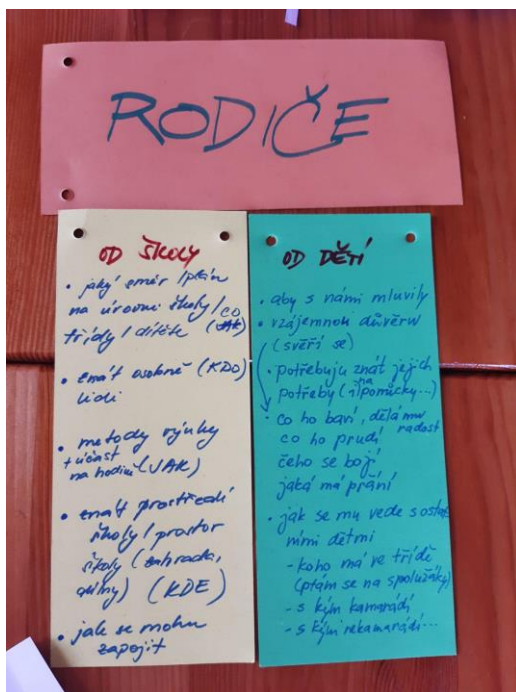 RODIČE
OD ŠKOLY
• jaký směr/plán
na úrovni školy/co
třídy/dítěte (JAK)
• znát osobně (KDO)
lidi
• metody výuky
+ účast
na hodině (JAK)
• znát prostředí
školy/prostor
školy (zahrada,
dílny) (KDE)
• jak se mohu
zapojit
OD DĚTÍ
• aby s námi mluvily
• vzájemnou důvěru
(svěří se)
• potřebuju znát jejich
potřeby (na pomůcky...)
• co ho baví, dělá mu
radost
co ho prudí
čeho se bojí
jaká má přání
• jak se mu vede s ostat
nimi dětmi
- koho má ve třídě
(ptám se na spolužáky)
- s kým kamarádí
- s kým nekamarádí...